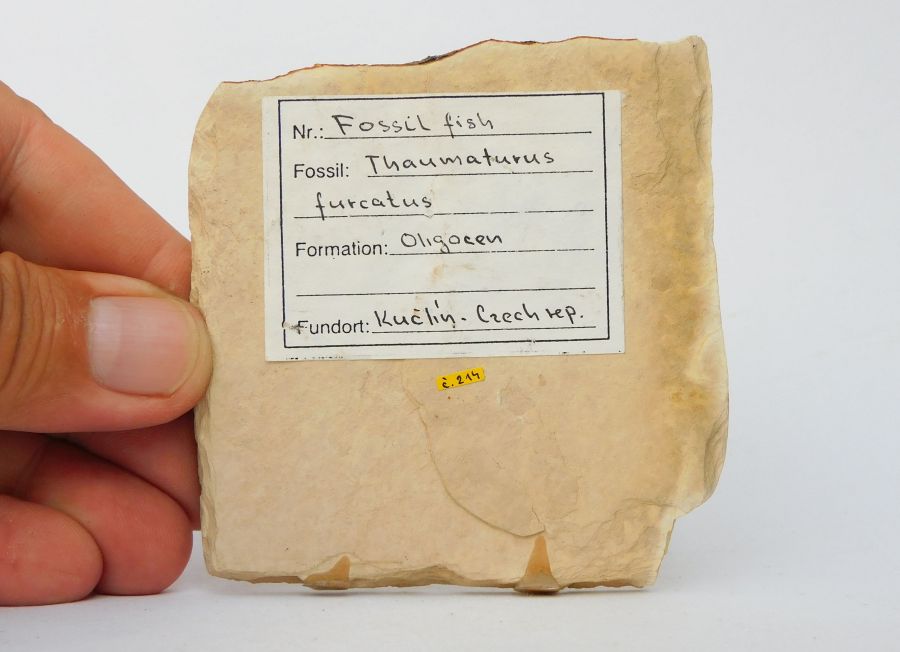 Nr.: Fossil fish
Fossil: Thaumaturus
furcatus
Formation: Oligocen
Fundort: Kučlín - Czech rep.
č. 214